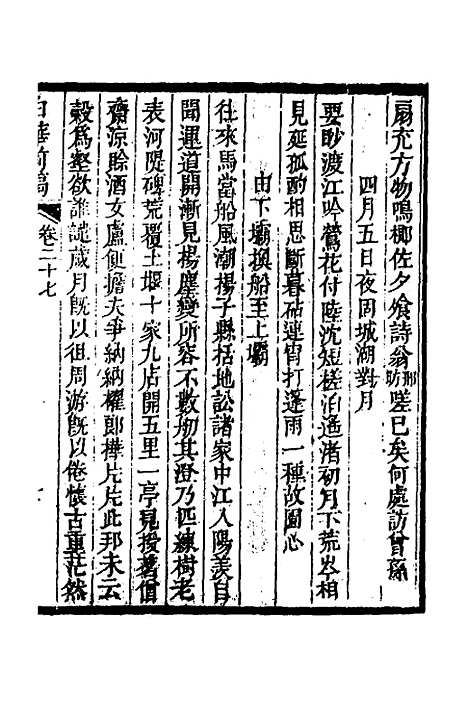 扇充方物鳴榔佐夕飧詩翁邢昉嗟已矣何處訪曾孫
四月五日夜固城湖對月
要眇渡江吟鶯花付陸沈短槎泊遙渚初月下荒岑相
見延孤酌相思斷暮砧連宵打蓬雨一種故園心
由下壩換船至上壩
往來馬當船風潮楊子縣括地訟諸家中江入陽羨自
聞運道開漸見揚塵變所容不數舠其澄乃匹練樹老
表河隄碑荒覆土堰十家九店開五里一亭見援署僧
齋涼賒酒女盧便擔夫爭納納櫂郎樺片片此邦未云
穀為壑欲誰譴歲月旣以徂周游旣以倦懷古重茫然
白華前稿
卷二十七
七